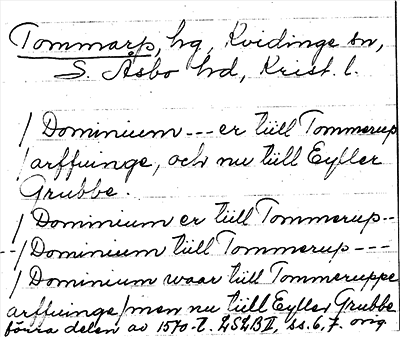 Tommarp, hg, Kvidinge sn,
S. Åsbo hd, Krist. l.
/ Dominium --- er tiill Tommerup
/ arffuinge, och nu tiill Eyller
Grubbe.
/ Dominium er tiill Tommerup --
--/ Dominium tiill Tommerup ----
/ Dominium waar tiill Tommeruppe
arffuinge / men nu tiill Eyller Grubbe
förra delen av 1570-t. LSLB II, ss. 6, 7. orig